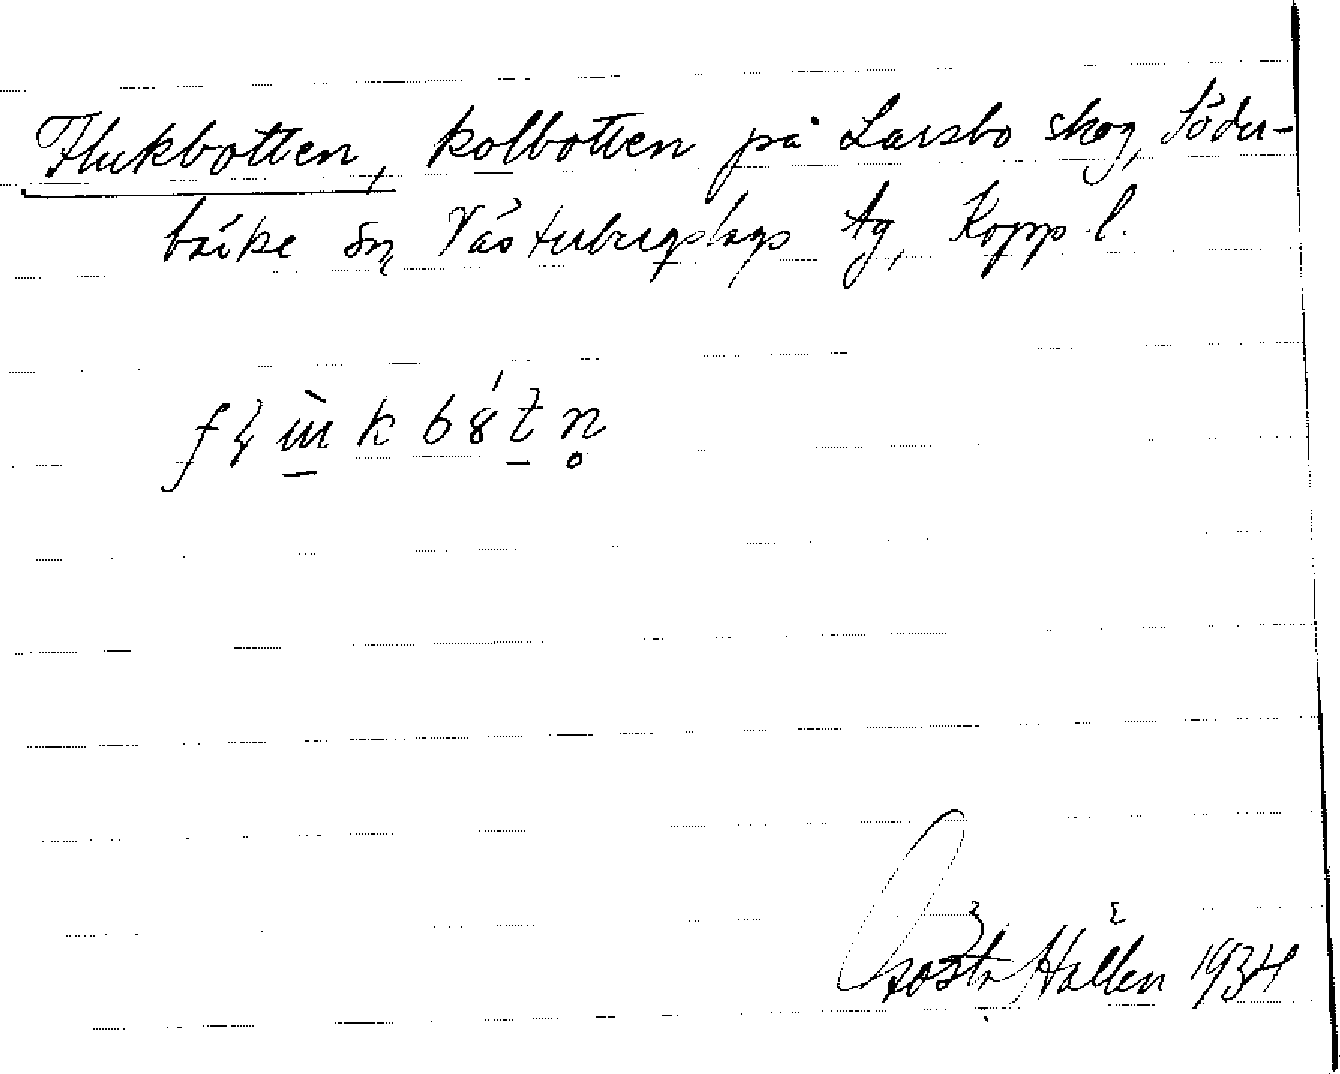 Flukbotten, kolbotten på Larsbo skog, Söder-
bärke sn, Västerbergslags tg, Kopp l.
Gösta Hallén 1934